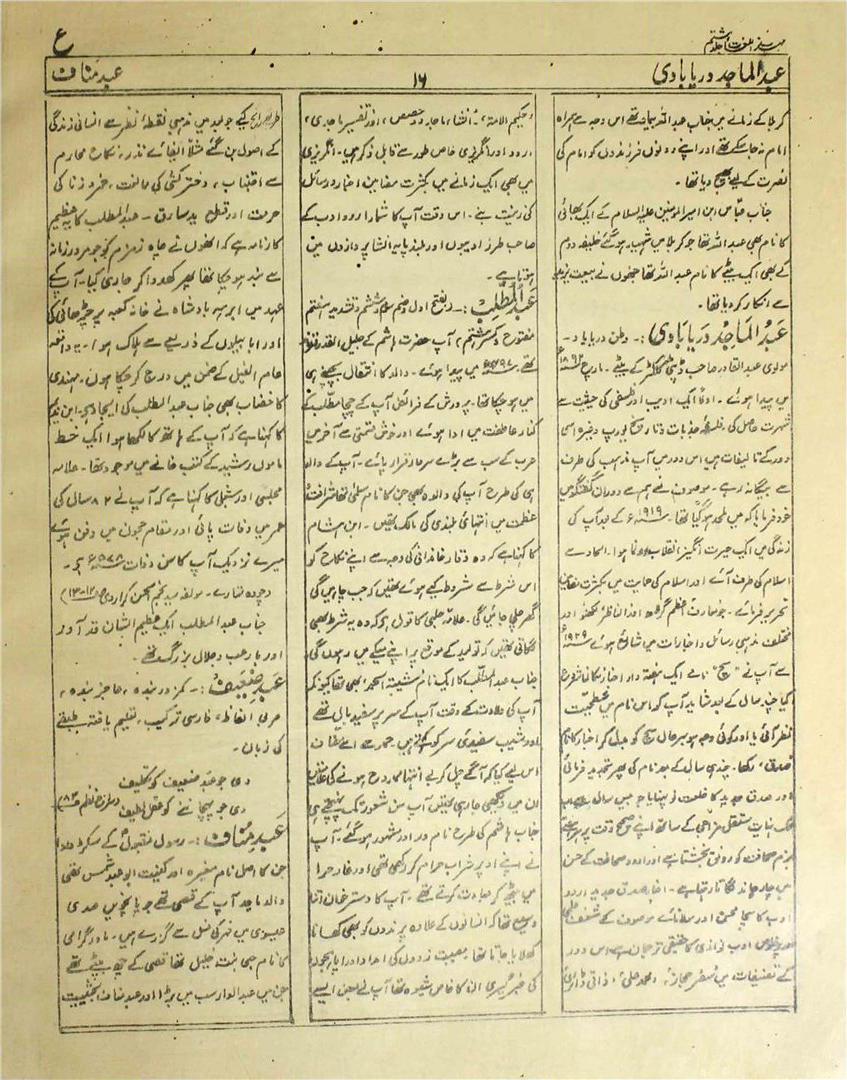 مہذب اللغات جلد ہشتم
ع
عبدالماجد دریابادی
۱۶
عبد مناف
کربلا کے زمانے میں جناب عبداللہ بیمار تھے اس وجہ سے ہمراہ
امام نہ جاسکے تھے اور اپنے دونوں فرزندوں کو امام کی
نصرت کے لیے بھیج دیا تھا۔
جناب عباس ابن امیرالمومنین علیہ السلام کے ایک بھائی
کا نام بھی عبداللہ تھا جو کربلا میں شہید ہوگئے خلیفہ دوم
کے بھی ایک بیٹے کا نام عبداللہ تھا جنھوں نے بیعت یزید
سے انکار کردیا تھا۔
عَبدُ الْمَاجِد دَریَابَادی :۔ وطن دریاباد۔
مولوی عبدالقادر صاحب ڈپٹی کلکٹر کے بیٹے۔ مارچ ۱۸۹۲ء
میں پیدا ہوئے۔ اولاً ایک ادیب اور فلسفی کی حیثیت سے
شہرت حاصل کی، فلسفۂ جذبات و تاریخ یورپ وغیرہ اسی
دور کے تالیفات ہیں اس دور میں آپ مذہب کی طرف
سے بیگانہ رہے۔ موصوف نے ہم سے دوران گفتگو میں
خود فرمایا کہ میں ملحد ہوگیا تھا۔ ۱۹۱۹ء کے بعد آپ کی
زندگی میں ایک حیرت انگیز انقلاب رونما ہوا۔ الحاد سے
اسلام کی طرف آئے اور اسلام کی حمایت میں بکثرت مضامین
تحریر فرمائے۔ جو معارف اعظم گڑھ اور الناظر لکھنؤ اور
مختلف مذہبی رسائل و اخبارات میں شائع ہوئے ۱۹۲۹ء
سے آپ نے "سچ" نامے ایک ہفتہ وار اخبار نکالنا شروع
کیا چند سال کے بعد شاید آپ کو اس نام میں کچھ
نظر آئی یا اور کوئی وجہ ہو بہرحال سچ کو بدل کر اخبار کا نام
صدق رکھا۔ چندہی سال کے بعد نام کی پھر تجدید فرمائی
اور صدق جدید کا خلعت نو پہنایا جو جس سال سے اب
تک نہایت مستقل مزاجی کے ساتھ اپنے صحیح وقت پر
بزم صحافت کو رونق بخشتا ہے اور اردو صحافت کے حسن
میں چار چاند لگاتا رہتا ہے۔ اخبار صدق جدید اردو
ادب کا سچا محسن اور مولانائے موصوف کے شغف علمی
اور پرخلوص ادب نوازی کا حقیقی ترجمان ہے اس دور
کے تصنیفات میں سفر حجاز، محمد علی، ذاتی ڈائری
،حکیم الامت، انشاء ماجد دو حصص، اور تفسیر ماجدی،
اردو اور انگریزی خاص طور سے قابل ذکر ہیں۔ انگریزی
میں بھی ایک زمانے میں بکثرت مضامین اخبار و رسائل
کی زینت بنے۔ اس وقت آپ کا شمار اردو ادب کے
صاحب طرز ادیبوں اور بلند پایہ انشا پردازوں میں
ہوتا ہے۔
عَبدُ المُطَّلِب :۔ (بفتح اول وضم سوم وششم وتشدید ہفتم
مفتوح وکسر ہشتم) آپ حضرت ہاشم کے جلیل القدر فرزند
تھے۔ ۴۹۷ء میں پیدا ہوئے۔ والد کا انتقال بچپنے ہی
میں ہوچکا تھا۔ پرورش کے فرائض آپ کے چچا مطلب کے
کنار عاطفت میں ادا ہوئے اور خوش قسمتی سے آخر میں
عرب کے سب سے بڑے سردار قرار پائے۔ آپ کے والد
ہی کی طرح آپ کی والدہ بھی جن کا نام سلمیٰ تھا شرافت و
عظمت میں انتہائی بلندی کی مالک تھیں۔ ابن ہشام
کا کہنا ہے کہ وہ وقار خاندانی کی وجہ سے اپنے نکاح کو
اس شرط سے مشروط کیے ہوئے تھیں کہ جب چاہیں گی
گھر چلی جائیں گی۔ علامہ حلبی کا قول ہے کہ وہ یہ شرط بھی
لگاتی تھیں کہ تولید کے موقع پر اپنے میکے میں رہوں گی
جناب عبدالمطلب کا ایک نام شیبۃ الحمد بھی تھا کیونکہ
آپ کی ولادت کے وقت آپ کے سر پر سفید بال تھے
اور شیب سفیدی سر کو کہتے ہیں۔ حمد سے اسے مضاف
اس لیے کیا کہ آگے چل کر بے انتہا ممدوح ہونے کی علامتیں
ان میں دیکھی جارہی تھیں آپ سن شعور تک پہنچتے ہی
جناب ہاشم کی طرح نام ور اور مشہور ہوگئے۔ آپ
نے اپنے اوپر شراب حرام کر رکھی تھی اور غار حرا
میں بیٹھ کر عبادت کرتے تھے۔ آپ کا دسترخوان اتنا
وسیع تھا کہ انسانوں کے علاوہ پرندوں کو بھی کھانا
کھلایا جاتا تھا مصیبت زدوں کی امداد اور اپاہجوں
کی خبرگیری ان کا خاص شیوہ تھا آپ نے بعض ایسے
طریقے رائج کیے جو بعد میں مذہبی نقطۂ نظر سے انسانی زندگی
کے اصول بن گئے مثلاً ایفائے نذر، نکاح محارم
سے اجتناب، دختر کشی کی ممانعت، خمر و زنا کی
حرمت اور قطع ید سارق۔ عبدالمطلب کا یہ عظیم
کارنامہ ہے کہ انھوں نے چاہ زمزم کو جو مرور زمانہ
سے بند ہوچکا تھا پھر کھدوا کر جاری کیا۔ آپ کے
عہد میں ابرہہ بادشاہ نے خانہ کعبہ پر چڑھائی کی
اور ابابیلوں کے ذریعے سے ہلاک ہوا۔ یہ واقعہ
عام الفیل کے ضمن میں درج کرچکا ہوں۔ مہندی
کا خضاب بھی جناب عبدالمطلب کی ایجاد ہے۔ ابن ندیم
کا کہنا ہے کہ آپ کے ہاتھ کا لکھا ہوا ایک خط
ماموں رشید کے کتب خانے میں موجود تھا۔ علامہ
مجلسی اور شبلی کا کہنا ہے کہ آپ نے ۸۲ سال کی
عمر میں وفات پائی اور مقام حجون میں دفن ہوئے
میرے نزدیک آپ کا سن وفات ۵۷۸ء ہے۔
(چودہ ستارے۔ مولفہ سید نجم الحسن کراروی ص ۱۲-۱۳)
جناب عبدالمطلب ایک عظیم الشان قد آور
اور بارعب و جلال بزرگ تھے۔
عَبدِ ضَعِیف :۔ کمزور بندہ، عاجز بندہ،
عربی الفاظ، فارسی ترکیب، تعلیم یافتہ طبقے
کی زبان۔
دی جو عبد ضعیف کو تکلیف
دی جو پہچاننے کو عقل لطیف (طرز نظم ص ۸۳)
عَبد مُناف :۔ رسول مقبول کے سکڑ دادا
جن کا اصل نام مغیرہ اور کنیت ابو عبد شمس تھی
والد ماجد آپ کے قصی تھے جو پانچویں صدی
عیسوی میں فہر کی نسل سے گزرے ہیں۔ مادر گرامی
کا نام حبی بنت حلیل تھا قصی کے چھ بیٹے تھے
جن میں عبدالدار سب میں بڑا اور عبد مناف